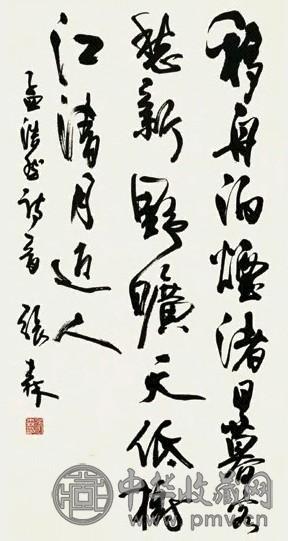 移舟泊煙渚日暮客
愁新野曠天低樹
江清月近人
孟浩然詩 張森
中华收藏网
www.pmv.cn